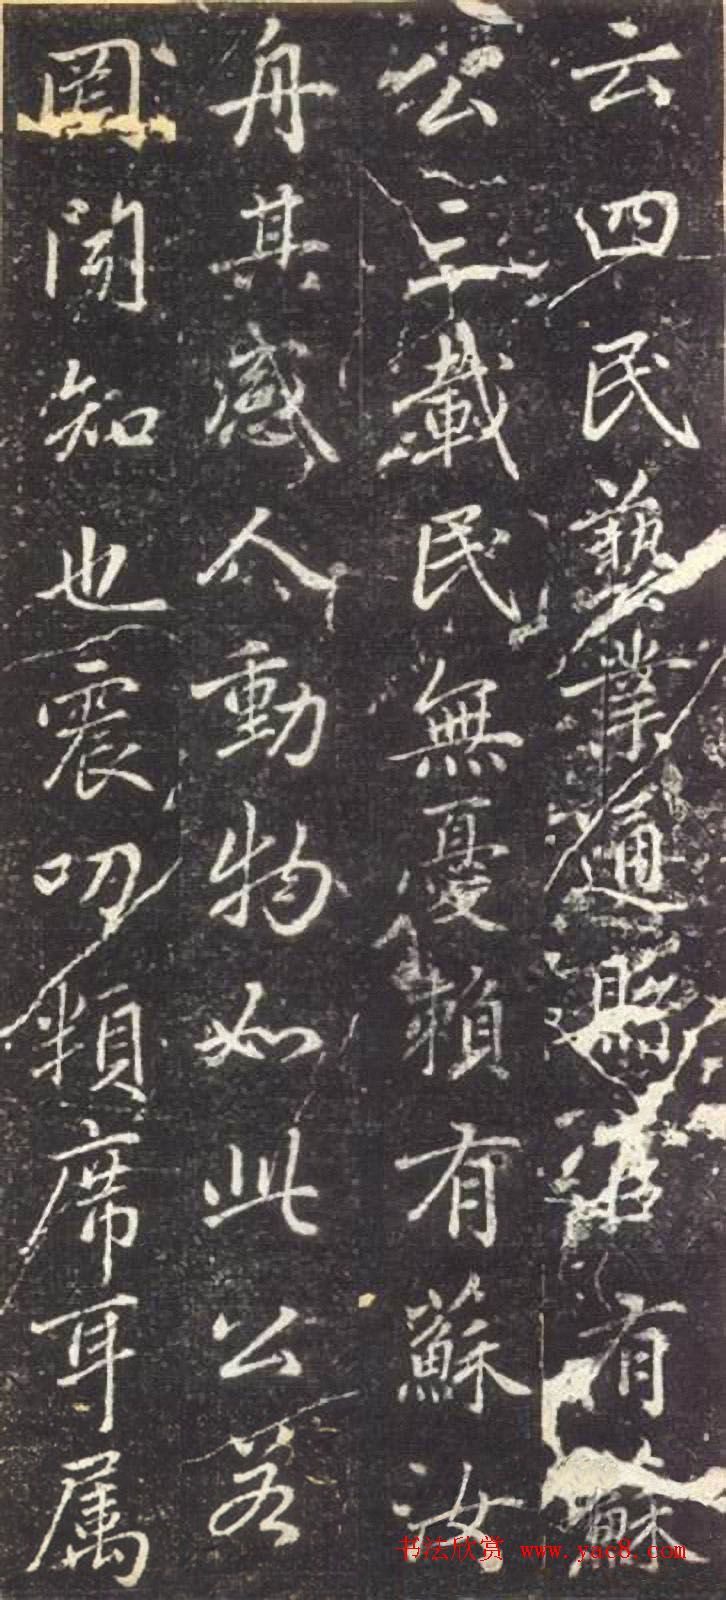 云四民藝業通有蘇
公三載民無憂賴有蘇汝
舟其感人動物如此公若
罔聞知也震叨頻席耳属
书法欣赏 www.yac8.com